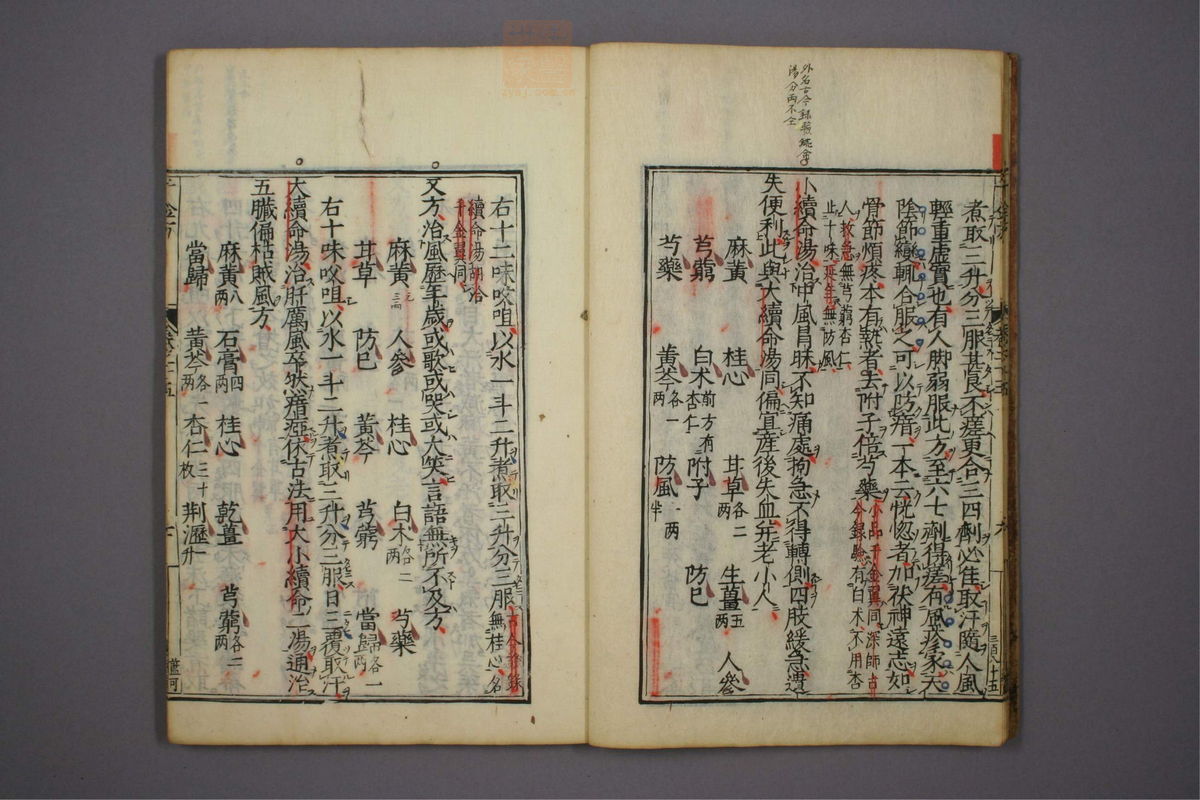 外名古今録驗
湯分兩不仝
煮取三升分三服甚良不瘥更合三四劑必佳取汗隨人風
輕重虛實也有人脚弱服此方至六七劑得瘥有風疹家天
陰節變輒合服之可以防瘖一本云恍惚者加茯神遠志如
骨節煩疼本有熱者去附子倍芍藥小品千金翼同深師古
今録驗有白术不用杏
人救急無芎藭杏仁
止十味延年無防風
小續命湯治中風冒昧不知痛處拘急不得轉側四肢緩急遺
失便利此與大續命湯同偏宜産後失血并老小人
麻黃 桂心 甘草各二兩 生薑五兩 人參
芎藭 白术前方有杏仁 附子 防巳
芍藥 黃芩各一兩 防風一兩半
右十二味㕮咀以水一斗二升煮取三升分三服古今録無桂心名
續命湯胡洽
千金翼同
又方治風歷年歲或歌或哭或大笑言語無所不及方
麻黃三兩 人參 桂心 白术各二兩 芍藥
甘草 防巳 黃芩 芎藭 當歸各一兩
右十味㕮咀以水一斗二升煮取三升分三服日三覆取汗
大續命湯治肝厲風卒然瘖瘂依古法用大小續命二湯通治
五臟偏枯賊風方
麻黃八兩 石膏四兩 桂心 乾薑 芎藭各二兩
當歸 黃芩各一兩 杏仁三十枚 荆瀝一升